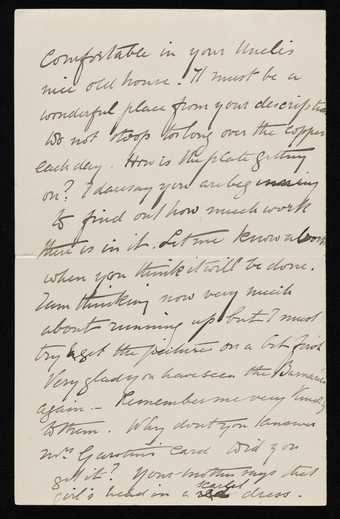 Comfortable in your Uncle's
nice old house. It must be a
wonderful place from your description
Do not stoop too long over the copper
each day. How is the plate getting
on? I daresay you are beginning
to find out how much work
there is in it. Let me know about
when you think it will be done.
I am thinking now very much
about running up but I must
try & get the picture on a bit first
Very glad you have seen the
again — Remember me very kindly
to them. Why dont you answer
Mrs card. Did you
get it? Your mother says that
girl's head in a red scarlet dress.